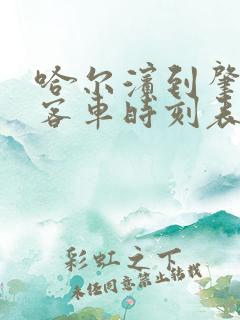 哈尔滨到肇
客车时刻表
彩虹之下
未经同意禁止转载